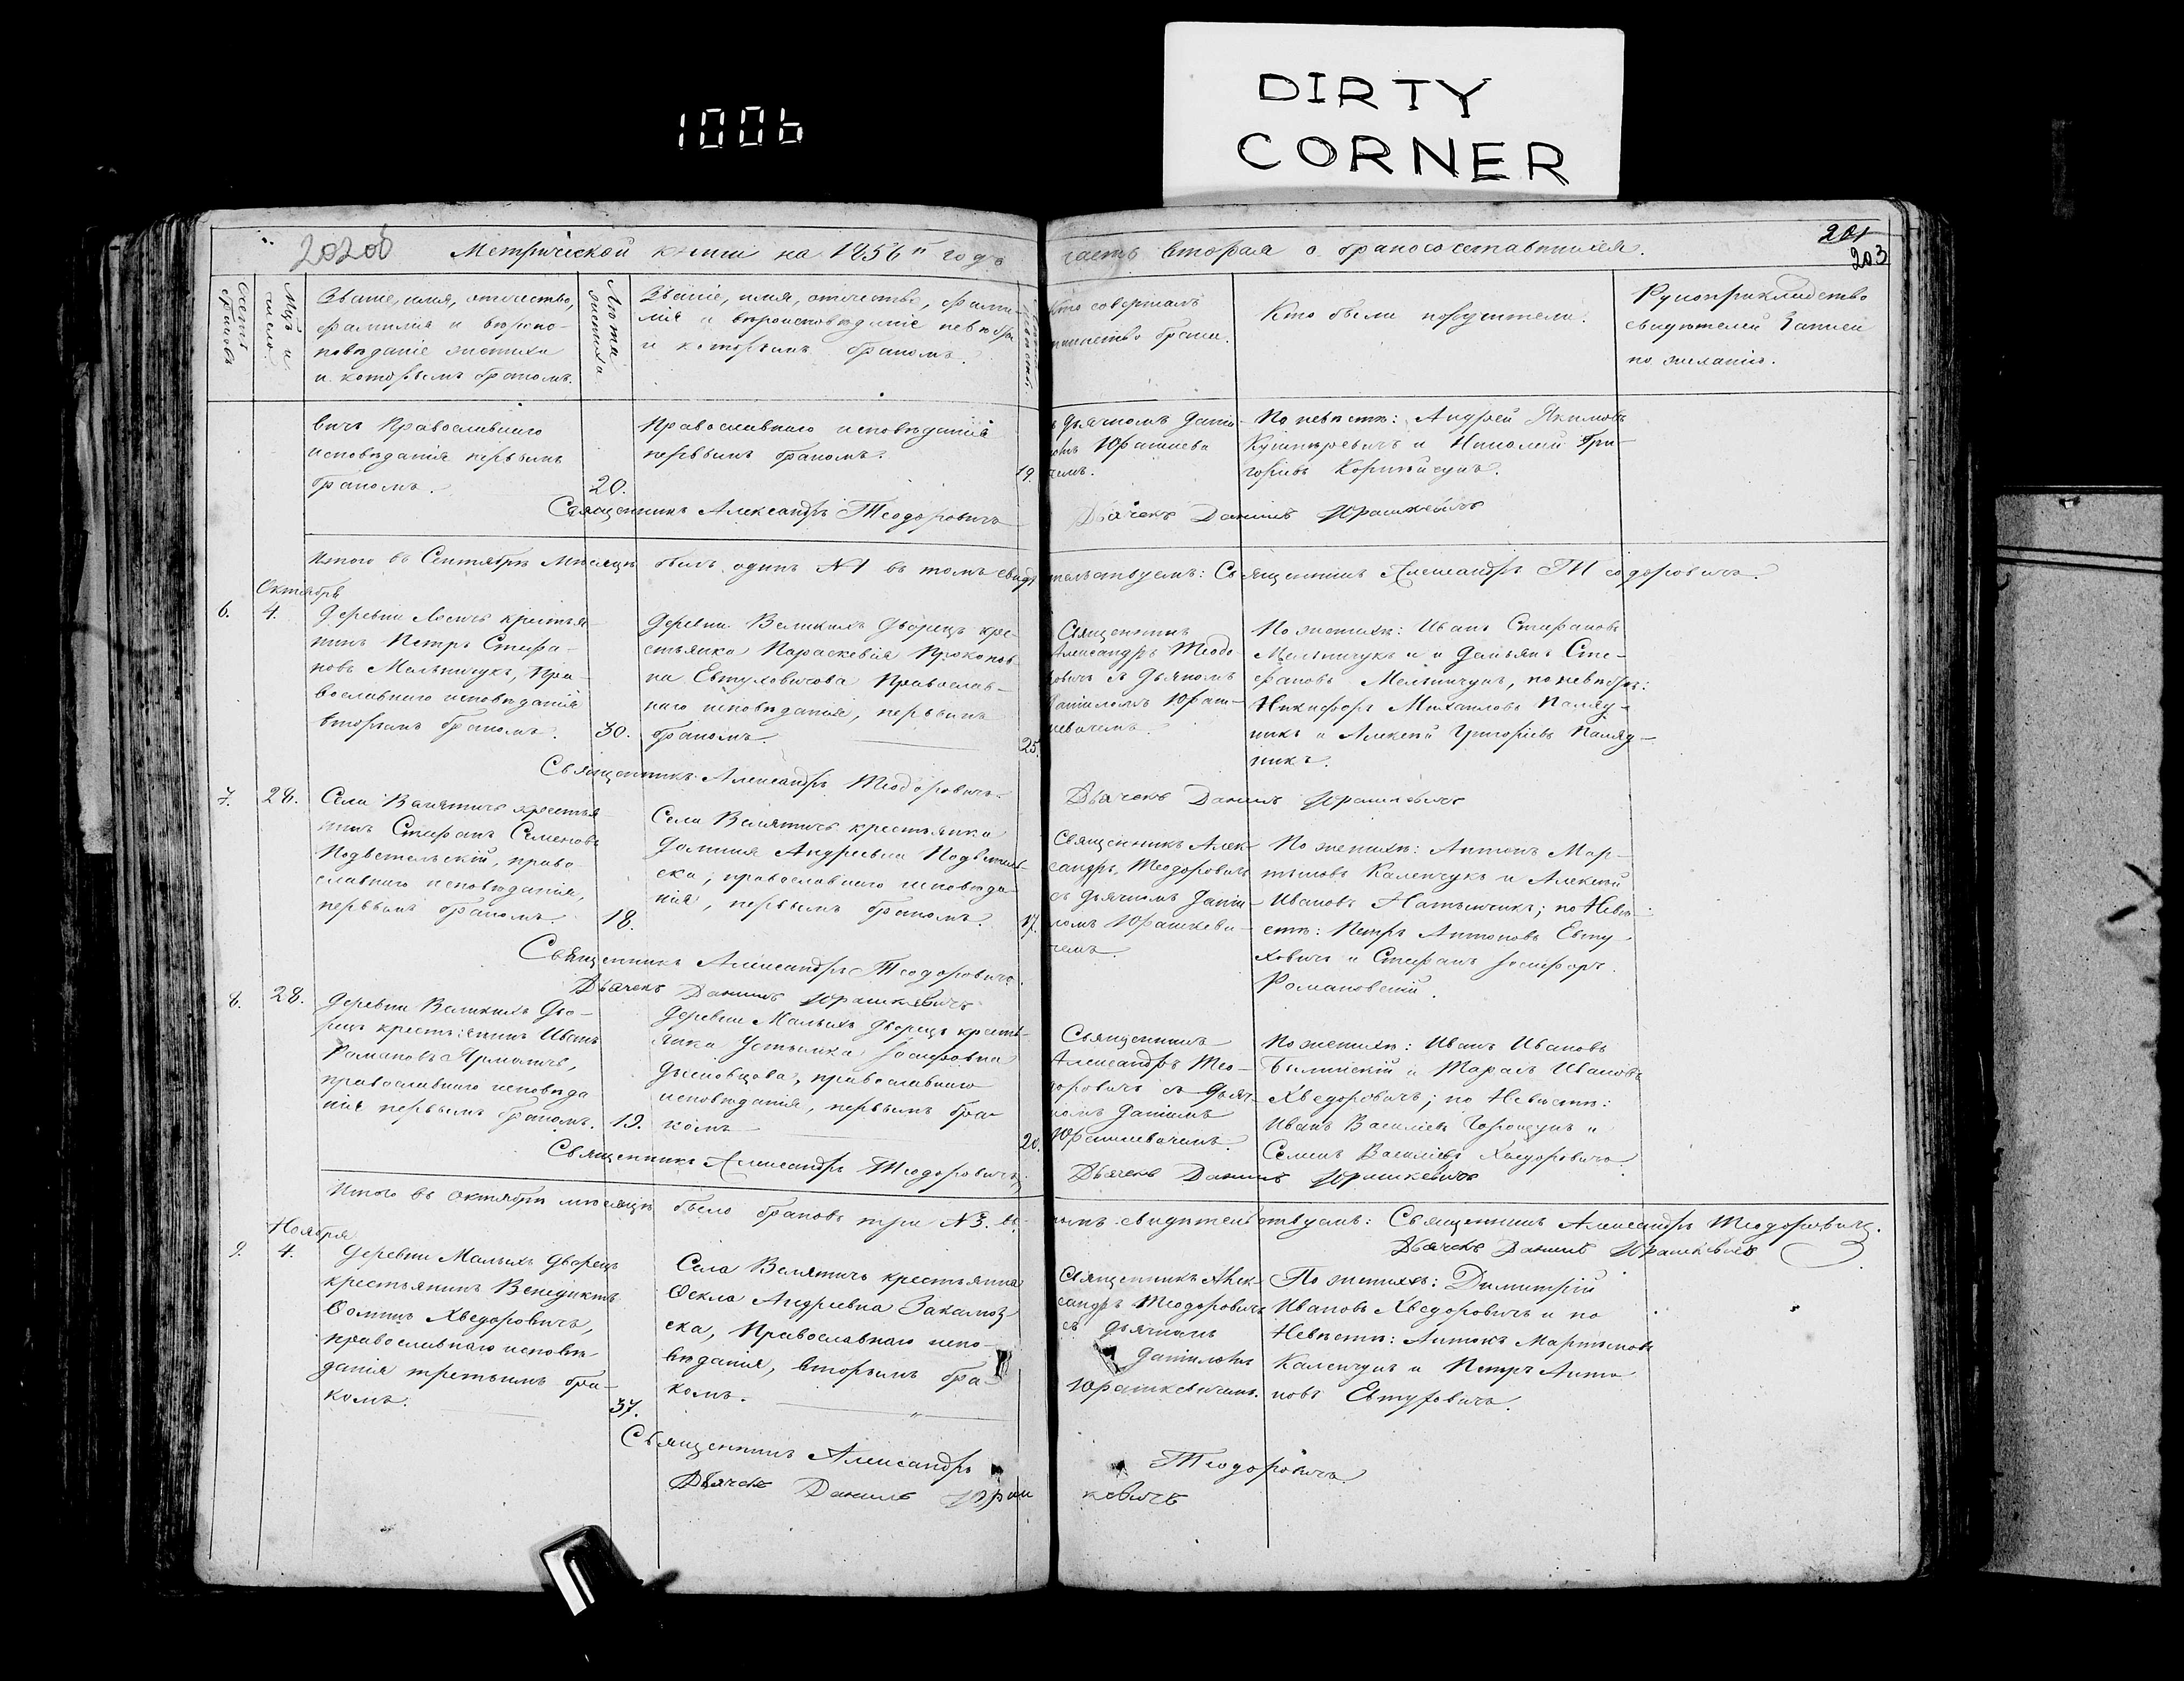 DIRTY
CORNER
1006
202об
Метрической книги на 1856й годъ
часть вторая о бракосочетавшихся.
201
203
Счетъ браковъ
Мцъ и число
Званіе, имя, отчество,
фамилія и вѣроиспо-
повѣданіе жениха
и которымъ бракомъ.
Лѣта жениха
Званіе, имя, отчество, фами-
лія и вѣроисповѣданіе невѣсты
и которымъ бракомъ.
Кто совершалъ
таинство брака.
Кто были поручители.
Рукоприкладство
свидѣтелей записи
по желанію.
вичъ Православнаго
исповѣданія первымъ
бракомъ.
20.
Православнаго исповѣданія
первымъ бракомъ.
19.
дьячкомъ Дани-
Юрашкеви
чемъ.
По невѣстѣ: Андрей Якимовъ
Кушнѣревичъ и Николай Гри-
горьевъ
Священникъ Александръ Теодоровичъ
Дьячекъ Даниилъ Юрашкевичъ
Итого въ Сентябрѣ мѣсяцѣ былъ одинъ №1 въ томъ свидѣтельствуемъ: Священникъ Александръ Теодоровичъ.
Октября
6.
4.
Деревни Лосичъ крестья-
нинъ Петръ Стефа-
новъ Мельничукъ, Пра-
вославнаго исповѣданія
вторымъ бракомъ.
30.
Деревни Великихъ Дворецъ кре-
стьянка Параскевія Прокопов-
на Евтуховичова Православ-
наго исповѣданія, первымъ
бракомъ.
25.
Священникъ
Александръ Теодо
ровичъ съ Дьячкомъ
Даниломъ Юраш-
кевичемъ.
По женихѣ: Иванъ Стефановъ
Мельничукъ и Демьянъ Сте-
фановъ Мельничукъ, по невѣстѣ:
Никифоръ Михайловъ Паляд-
никъ и Алексѣй Григорьевъ Паляд-
никъ.
Священникъ Александръ Теодоровичъ
Дьячекъ Даниилъ Юрашкевичъ
7.
28.
Села Велятичъ крестья
нинъ Стефанъ Семеновъ
право
славнаго исповѣданія,
первымъ бракомъ.
18.
Села Велятичъ крестьянка
Домния Андреевна
ска, православнаго исповѣда-
нія, первымъ бракомъ.
17.
Священникъ Алек-
сандръ Теодоровичъ
съ дьячкомъ Дани-
ломъ Юрашкеви-
чемъ.
По женихѣ: Антонъ Мар-
тыновъ Каленчукъ и Алексѣй
Ивановъ по Невѣ-
стѣ: Петръ Антоновъ Евту-
ховичъ и Стефанъ Іосифовъ
Романовскій.
Священникъ Александръ Теодоровичъ.
Дьячекъ Даниилъ Юрашкевичъ
8.
28.
Деревни Великихъ Дво-
рецъ крестьянинъ Иванъ
Романовъ Ярмоличъ,
православнаго исповѣда
нія первымъ бракомъ.
19.
Деревни Малыхъ Дворецъ кресть-
янка Устинка Іосифовна
православнаго
исповѣданія, первымъ бра-
комъ
20.
Священникъ
Александръ Тео-
доровичъ съ Дьяч-
комъ Даниломъ
Юрашкевичемъ.
По женихѣ: Иванъ Ивановъ
Былинскій и Тарасъ Ивановъ
Хведоровичъ; по Невѣстѣ:
Иванъ Василіевъ и
Семенъ Василіевъ Хведоровичъ.
Священникъ Александръ Теодоровичъ
Дьячекъ Даниилъ Юрашкевичъ
Итого въ Октябрѣ мѣсяцѣ было браковъ три №3. въ чемъ свидѣтельствуемъ: Священникъ Александръ Теодоровичъ.
Дьячекъ Даниилъ Юрашкевичъ
Ноября
9.
4.
Деревни Малыхъ Дворецъ
крестьянинъ Венедиктъ
Ѳоминъ Хведоровичъ,
православнаго исповѣ-
данія третьимъ бра-
комъ.
37.
Села Велятичъ крестьянка
Ѳекла Андреевна
ска, Православнаго испо-
вѣданія, вторымъ бра-
комъ.
Священникъ Алек-
сандръ Теодоровичъ
съ дьячкомъ
Даниломъ
Юрашкевичемъ.
По женихѣ: Димитрій
Ивановъ Хведоровичъ и по
Невѣстѣ: Антонъ Мартыновъ
Каленчукъ и Петръ Анто
новъ Евтуховичъ.
Священникъ Александръ Теодоровичъ
Дьячекъ Даниилъ Юрашкевичъ